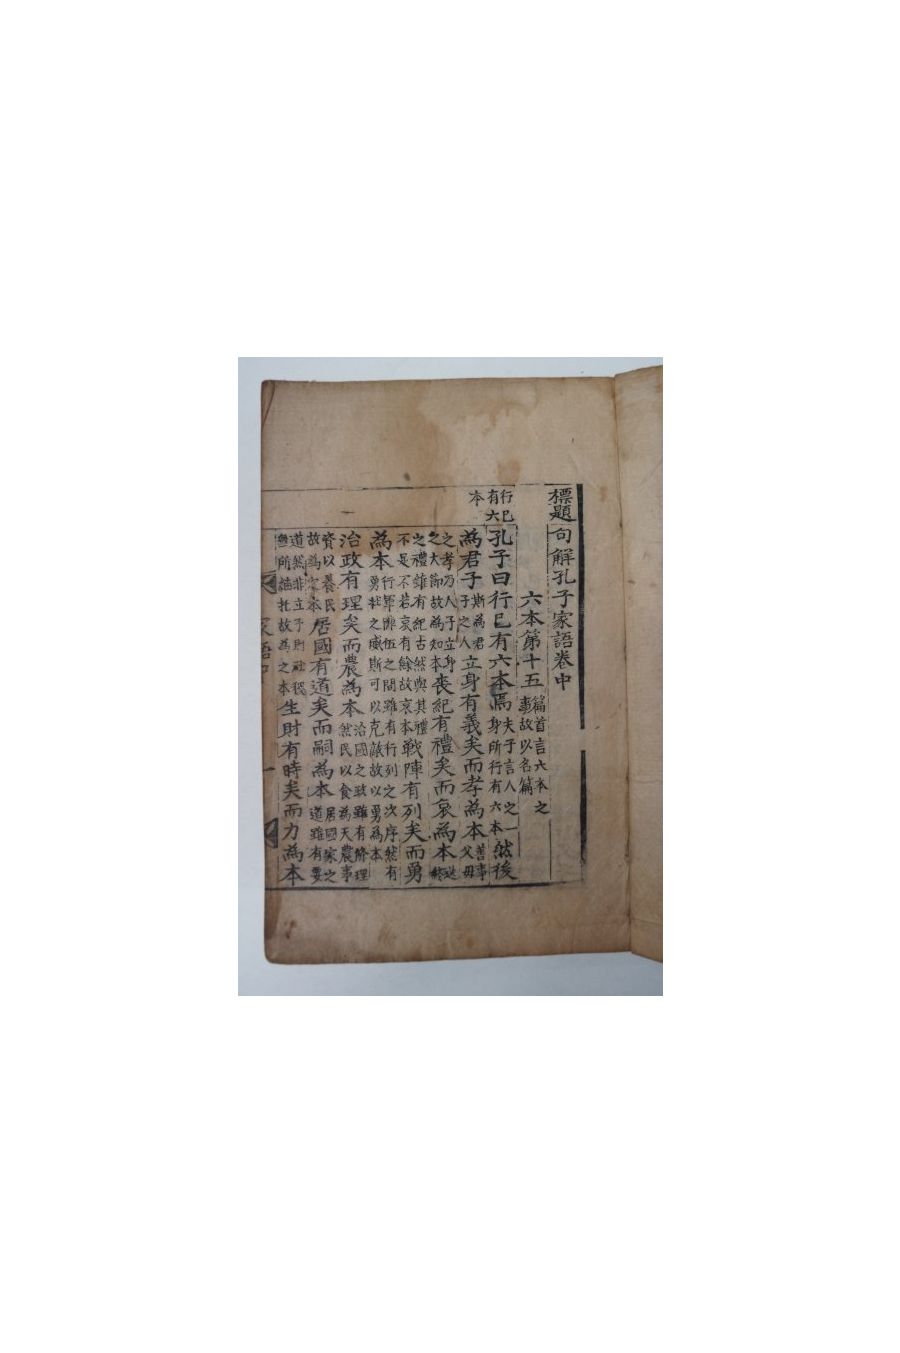 標題句解孔子家語卷中
六本第十五 篇首言六本之事故以名篇
行己有六本
孔子曰行己有六本焉 夫子言人之一身所行有六本 然後
為君子 斯為君子之人 立身有義矣而孝為本 善事父母
之孝乃人子立身之大節故為知本 喪紀有禮矣而哀為本 送終
之禮雖有紀古然與其禮不足不若哀有餘故哀本 戰陣有列矣而勇
為本 行軍陣伍之間雖有行列之次序然有勇敢之威斯可以克敵故以勇為本
治政有理矣而農為本 治國之政雖有條理然民以食為天農事
資以養民故為之本 居國有道矣而嗣為本 居國家之道雖有要
道然非立子則社稷無所託故為之本 生財有時矣而力為本
家語中 一